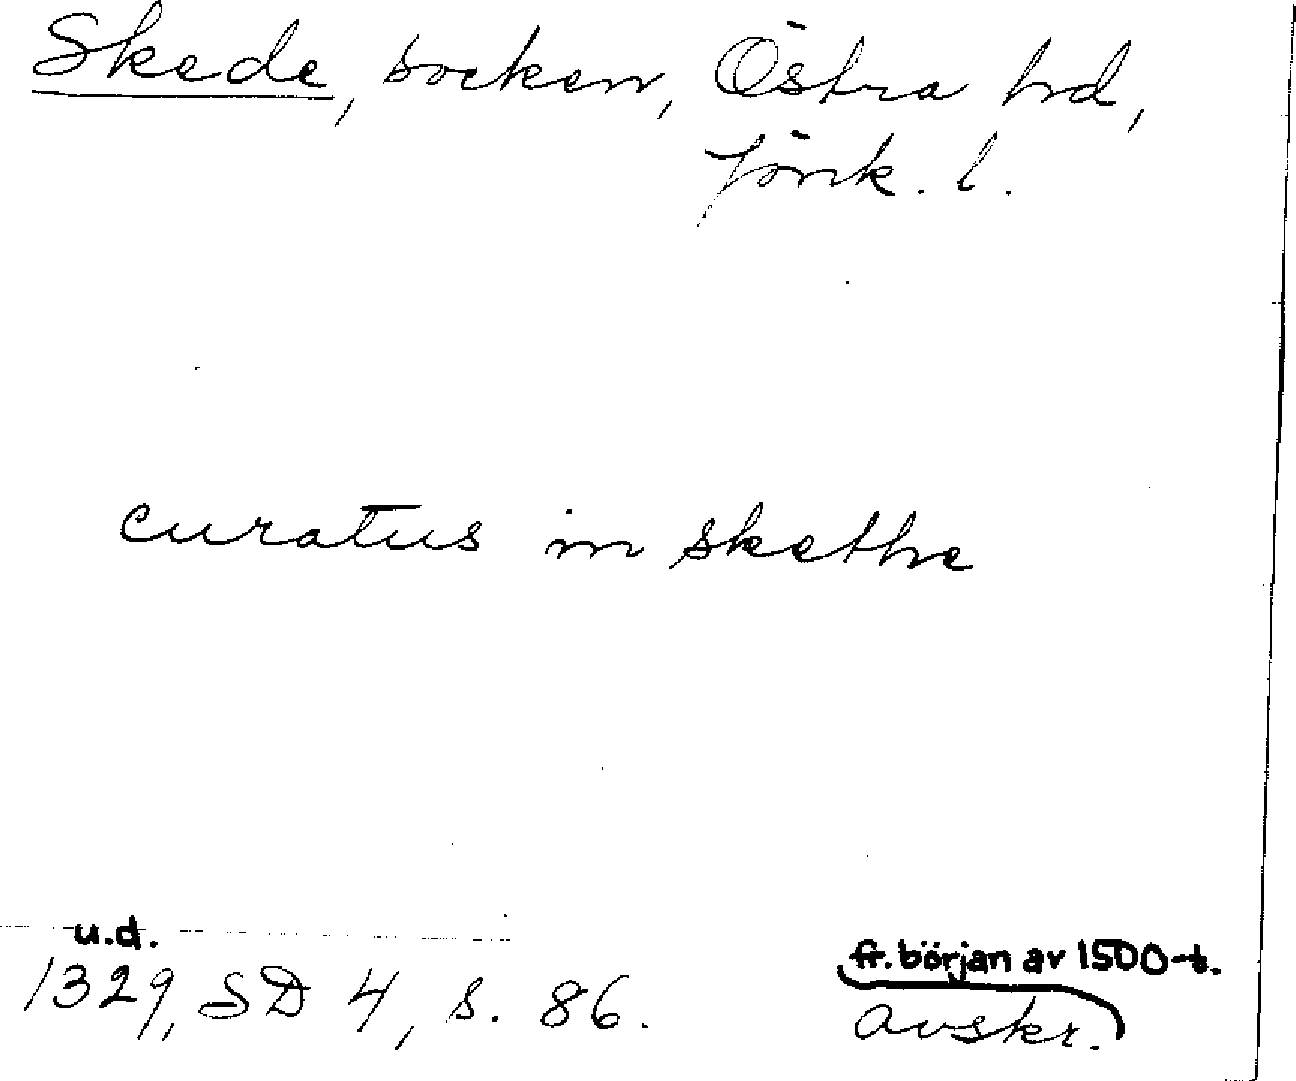 Skede, socken, Östra hd,
Jönk. l.
curatus in skethe
u.d.
1329, SD 4, s. 86.
fr. början av 1500-t.
avskr.